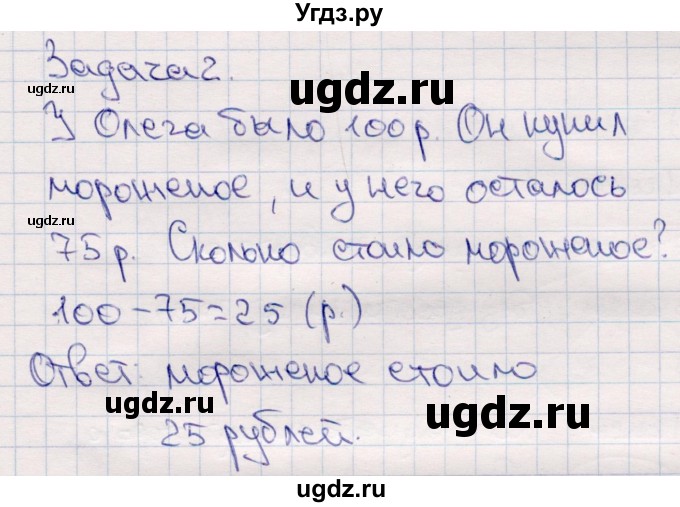 Угдз.ру
Задача 2.
ugdz.ru
ugdz.ru
У Олега было 100 р. Он купил
ugdz.ru
мороженое, и у него осталось
ugdz.ru
75 р. Сколько стоило мороженое?
ugdz.ru
100-75=25 (р.)
Ответ: мороженое стоило
ugdz.ru
ugdz.ru
25 рублей.
ugdz.ru